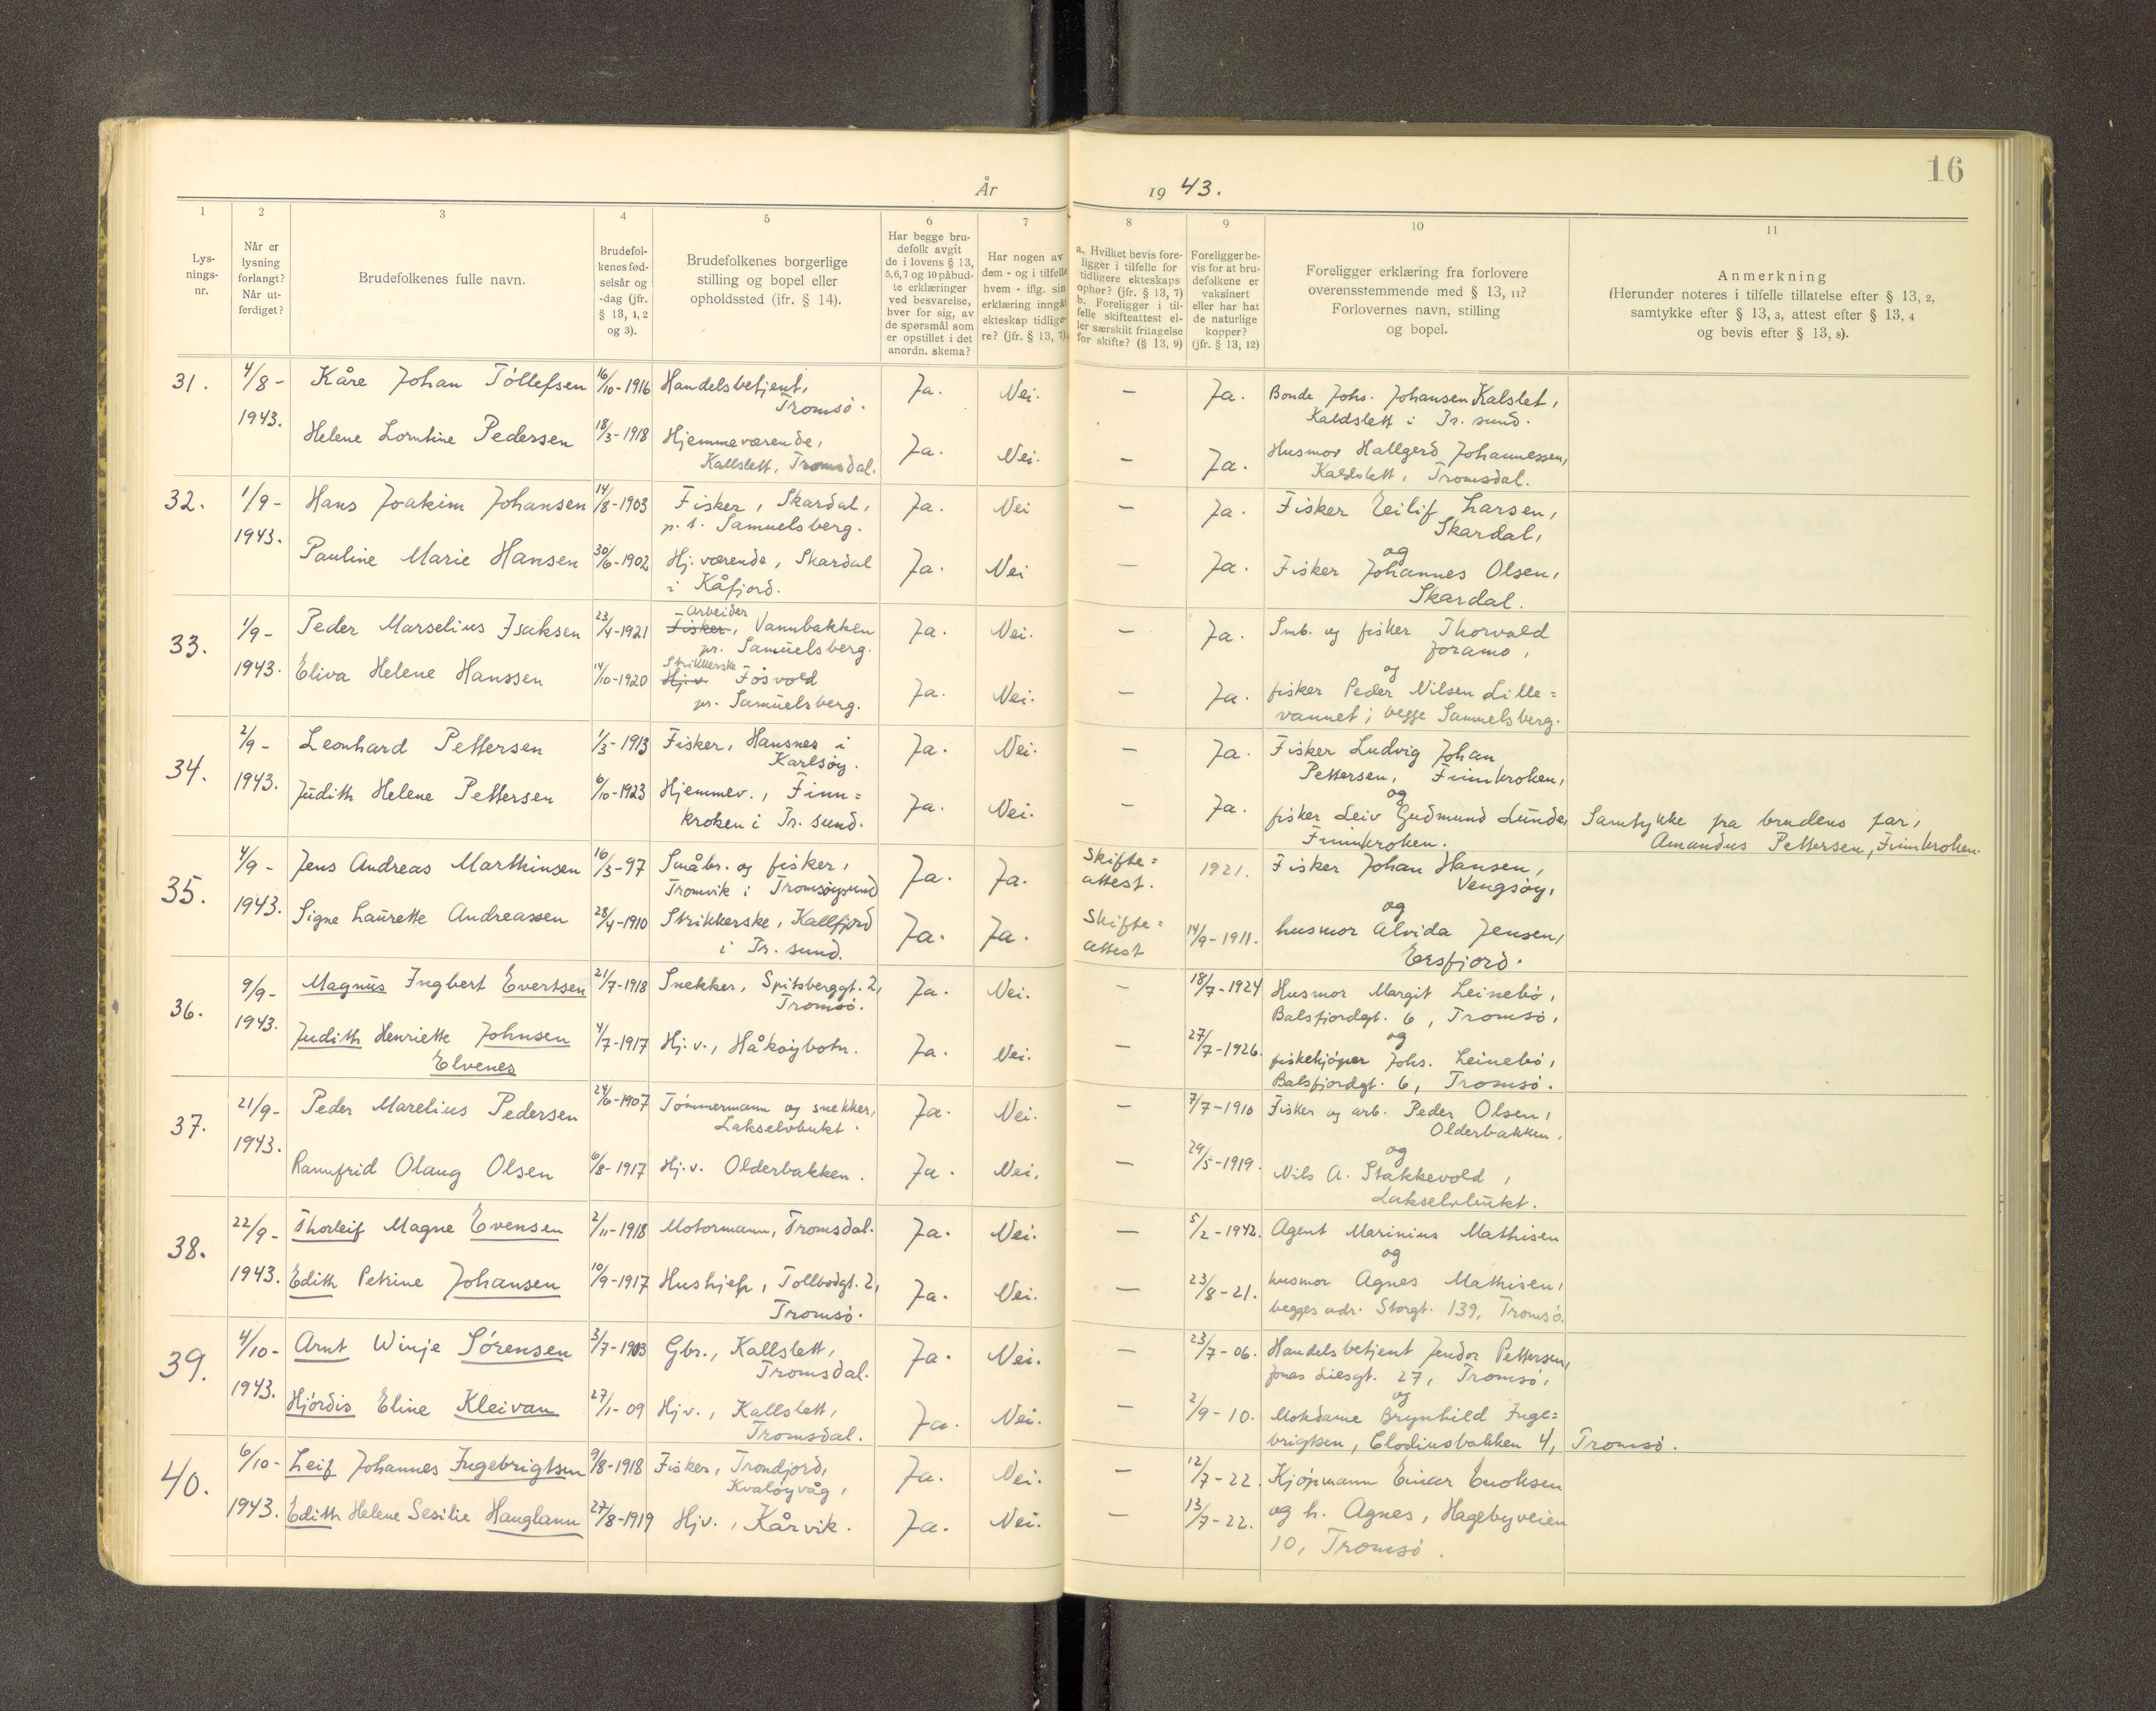 16
År 19 43.
1
2
3
4
5
6
7
8
9
10
11
Lys-
nings-
nr.
Når er
lysning
forlangt?
Når ut-
ferdiget?
Brudefolkenes fulle navn.
Brudefol-
kenes fød-
selsår og
-dag (jfr.
§ 13, 1, 2
og 3).
Brudefolkenes borgerlige
stilling og bopel eller
opholdssted (ifr. § 14).
Har begge bru-
defolk avgit
de i lovens § 13,
5,6,7 og 10 påbud-
te erklæringer
ved besvarelse,
hver for sig, av
de spørsmål som
er opstillet i det
anordn. skema?
Har nogen av
dem - og i tilfelle
hvem - iflg. sin
erklæring inngåt
ekteskap tidlige-
re? (jfr. § 13, 7).
a. Hvilket bevis fore-
ligger i tilfelle for
tidligere ekteskaps
ophør? (jfr. § 13, 7)
b. Foreligger i til-
felle skifteattest el-
ler særskilt fritagelse
for skifte? (§ 13, 9)
Foreligger be-
vis for at bru-
defolkene er
vaksinert
eller har hat
de naturlige
kopper?
(jfr. § 13, 12)
Foreligger erklæring fra forlovere
overensstemmende med § 13, 11?
Forlovernes navn, stilling
og bopel.
Anmerkning
(Herunder noteres i tilfelle tillatelse efter § 13, 2,
samtykke efter § 13, 3, attest efter § 13, 4
og bevis efter § 13, 8).
31. 4/8- Kåre Johan Tóllefsen 16/10-1916 Handelsbetjent, Ja. Nei. — Ja. Bonde Johs. Johansen Kalslet,
Tromsó. Kaldslett i Tr. sund.
1943. Helene Lorntine Pedersen 18/3-1918 Hjemmeværende, Ja. Nei. — Ja. Husmor Hallgerd Johannessen,
Kallslett, Tromsdal. Kaldslett, Tromsdal.
32. 1/9- Hans Joakim Johansen 14/8-1903 Fisker, Skardal, Ja. Nei — Ja. Fisker Eilif Larsen,
p.t. Samuelsberg. Skardal,
og
1943. Pauline Marie Hansen 30/6-1902 Hj. værende, Skardal Ja. Nei — Ja. Fisker Johannes Olsen,
i Kåfjord. Skardal.
Arbeider
33. 1/9- Peder Marselius Isaksen 23/4-1921 Fisker, Vannbakken Ja. Nei. — Ja. Smb. og fisker Thorvald
pr. Samuelsberg. Joramo,
Strikkerske og
1943. Eliva Helene Hanssen 14/10-1920 Hj.v. Fósvold Ja. Nei. — Ja. fisker Peder Nilsen Lille=
pr. Samuelsberg. vannet; begge Samuelsberg.
34. 2/9- Leonhard Pettersen 1/3-1913 Fisker, Hansnes i Ja. Nei. — Ja. Fisker Ludvig Johan
Karlsóy. Pettersen, Finnkroken,
og
1943. Judith Helene Pettersen 6/10-1923 Hjemmev., Finn= Ja. Nei. — Ja. fisker Leiv Gudmund Lunde, Samtykke fra brudens far,
kroken i Tr. sund. Finnkroken. Amandus Pettersen, Finnkroken.
35. 4/9- Jens Andreas Marthinsen 16/3-97 Småbr. og fisker, Ja. Ja. Skifte= 1921. Fisker Johan Hansen,
Tromvik i Tromsóysund attest. Vengsóy,
og
1943. Signe Laurette Andreassen 28/4-1910 Strikkerske, Kallfjord Ja. Ja. Skifte= 14/9-1911. husmor Alvida Jensen,
i Tr. sund. attest Ersfjord.
36. 9/9- Magnus Ingbert Evertsen 21/7-1918 Snekker, Spitsberggt. 2, Ja. Nei. — 18/7-1924 Husmor Margit Leinebó,
Tromsó. Balsfjordgt. 6, Tromsó,
og
1943. Judith Henriette Johnsen 4/7-1917 Hj.v., Håkóybotn. Ja. Nei. — 27/7-1926. fiskekjóper Johs. Leinebó,
Elvenes Balsfjordgt. 6, Tromsó.
37. 21/9- Peder Marelius Pedersen 24/6-1907 Tómmermann og snekker, Ja. Nei. — 7/7-1910 Fisker og arb. Peder Olsen,
Lakselvbukt. Olderbakken.
og
1943. Rannfrid Olaug Olsen 6/8-1917 Hj.v. Olderbakken. Ja. Nei. — 29/5-1919. Nils A. Stakkevold,
Lakselvbukt.
38. 22/9- Thorleif Magne Evensen 2/11-1918 Motormann, Tromsdal. Ja. Nei. — 5/2-1942. Agent Marinius Mathisen
og
1943. Edith Petrine Johansen 10/9-1917 Hushjelp, Tollbodgt. 2, Ja. Nei. — 23/8-21. husmor Agnes Mathisen,
Tromsó. begges adr. Storgt. 139, Tromsó.
39. 4/10- Arnt Winje Sórensen 3/7-1903 Gbr., Kallslett, Ja. Nei. — 23/7-06. Handelsbetjent Jendor Pettersen,
Tromsdal. Jonas Liesgt. 27, Tromsó,
og
1943. Hjórdis Eline Kleivan 27/1-09 Hjv., Kallslett, Ja. Nei. — 2/9-10. Motdame Brynhild Inge=
Tromsdal. brigtsen, Clodiusbakken 4, Tromsó.
40. 6/10- Leif Johannes Ingebrigtsen 9/8-1918 Fisker, Trondjord, Ja. Nei. — 12/7-22. Kjópmann Einar Enoksen
Kvalóyvåg,
1943. Edith Helene Sesilie Hauglann 27/8-1919 Hjv., Kårvik. Ja. Nei. — 13/7-22. og h. Agnes, Hagebyveien
10, Tromsó.